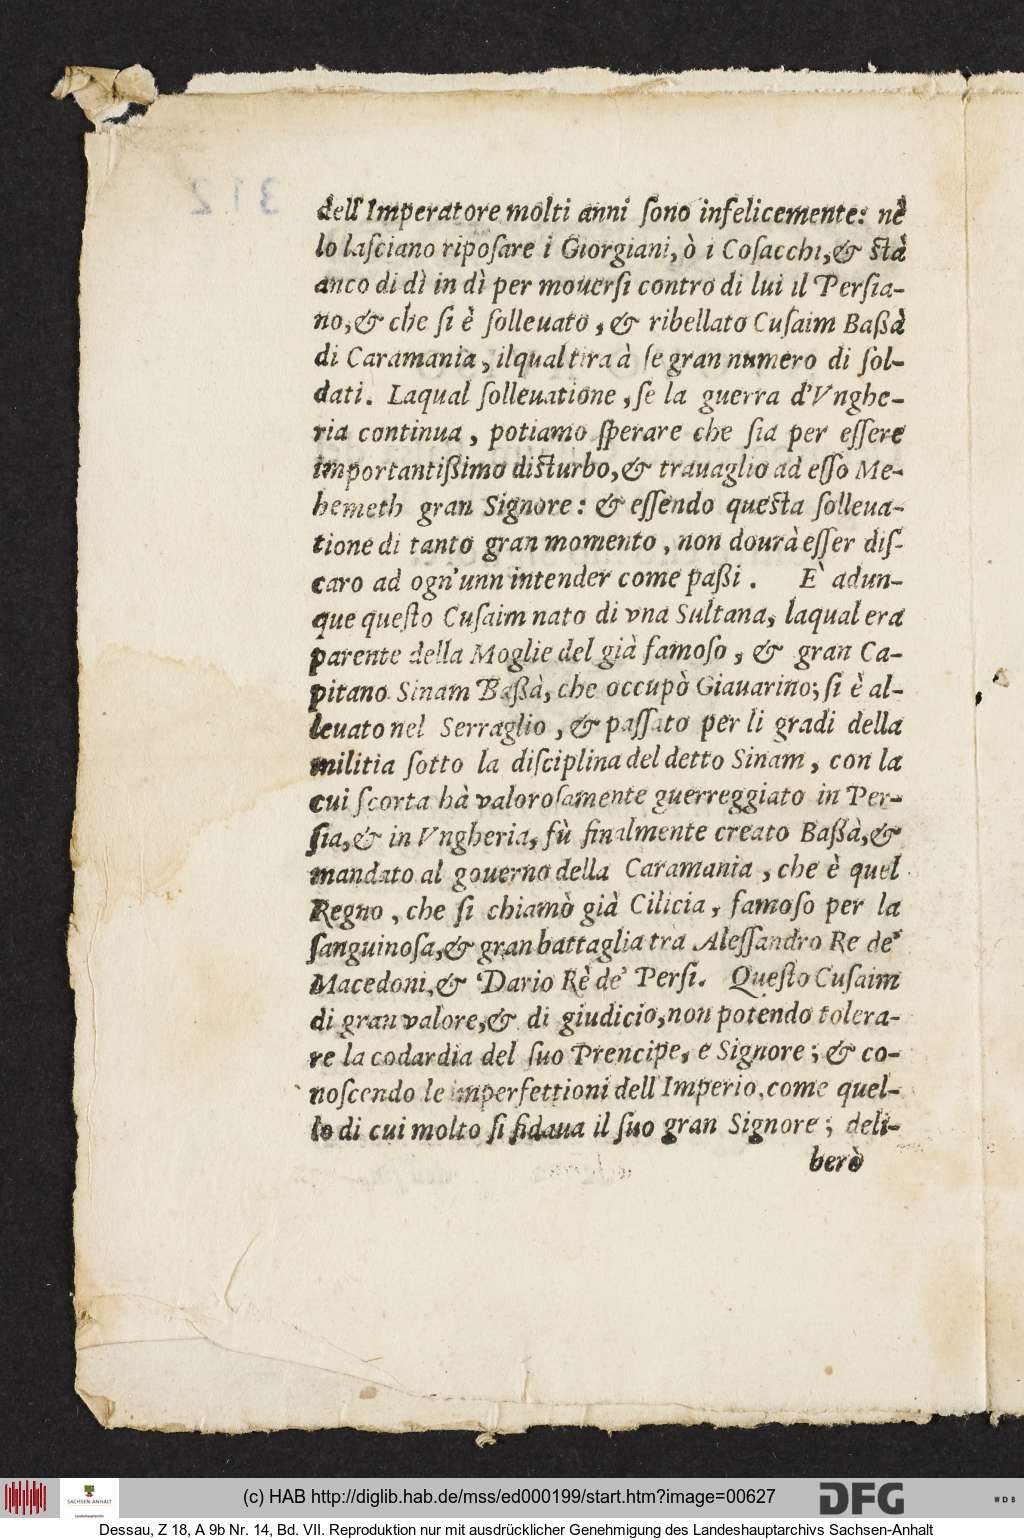 312
dell'Imperatore molti anni ſono infelicemente: nè
lo laſciano ripoſare i Giorgiani, ò i Coſacchi, & ſtà
anco di dì in dì per mouerſi contro di lui il Perſia-
no, & che ſi è ſolleuato, & ribellato Cuſaim Baßà
di Caramania, ilqual tira à ſe gran numero di ſol-
dati. Laqual ſolleuatione, ſe la guerra d'Vnghe-
ria continua, potiamo ſperare che ſia per eſſere
importantißimo diſturbo, & trauaglio ad eſſo Me-
hemeth gran Signore: & eſſendo queſta ſolleua-
tione di tanto gran momento, non dourà eſſer diſ-
caro ad ogn'unn intender come paßi. E` adun-
que queſto Cuſaim nato di vna Sultana, laqual era
parente della Moglie del già famoſo, & gran Ca-
pitano Sinam Baßà, che occupò Giauarino; ſi è al-
leuato nel Serraglio, & paſſato per li gradi della
militia ſotto la diſciplina del detto Sinam, con la
cui ſcorta hà valoroſamente guerreggiato in Per-
ſia, & in Vngheria, fù finalmente creato Baßà, &
mandato al gouerno della Caramania, che è quel
Regno, che ſi chiamò già Cilicia, famoſo per la
ſanguinoſa, & gran battaglia tra Aleſſandro Re de'
Macedoni, & Dario Rè de' Perſi. Queſto Cuſaim
di gran valore, & di giudicio, non potendo tolera-
re la codardia del ſuo Prencipe, e Signore; & co-
noſcendo le imperfettioni dell'Imperio, come quel-
lo di cui molto ſi fidaua il ſuo gran Signore; deli-
berò
SACHSEN-ANHALT
Landeshauptarchiv
(c) HAB http://diglib.hab.de/mss/ed000199/start.htm?image=00627
DFG
WDB
Dessau, Z 18, A 9b Nr. 14, Bd. VII. Reproduktion nur mit ausdrücklicher Genehmigung des Landeshauptarchivs Sachsen-Anhalt